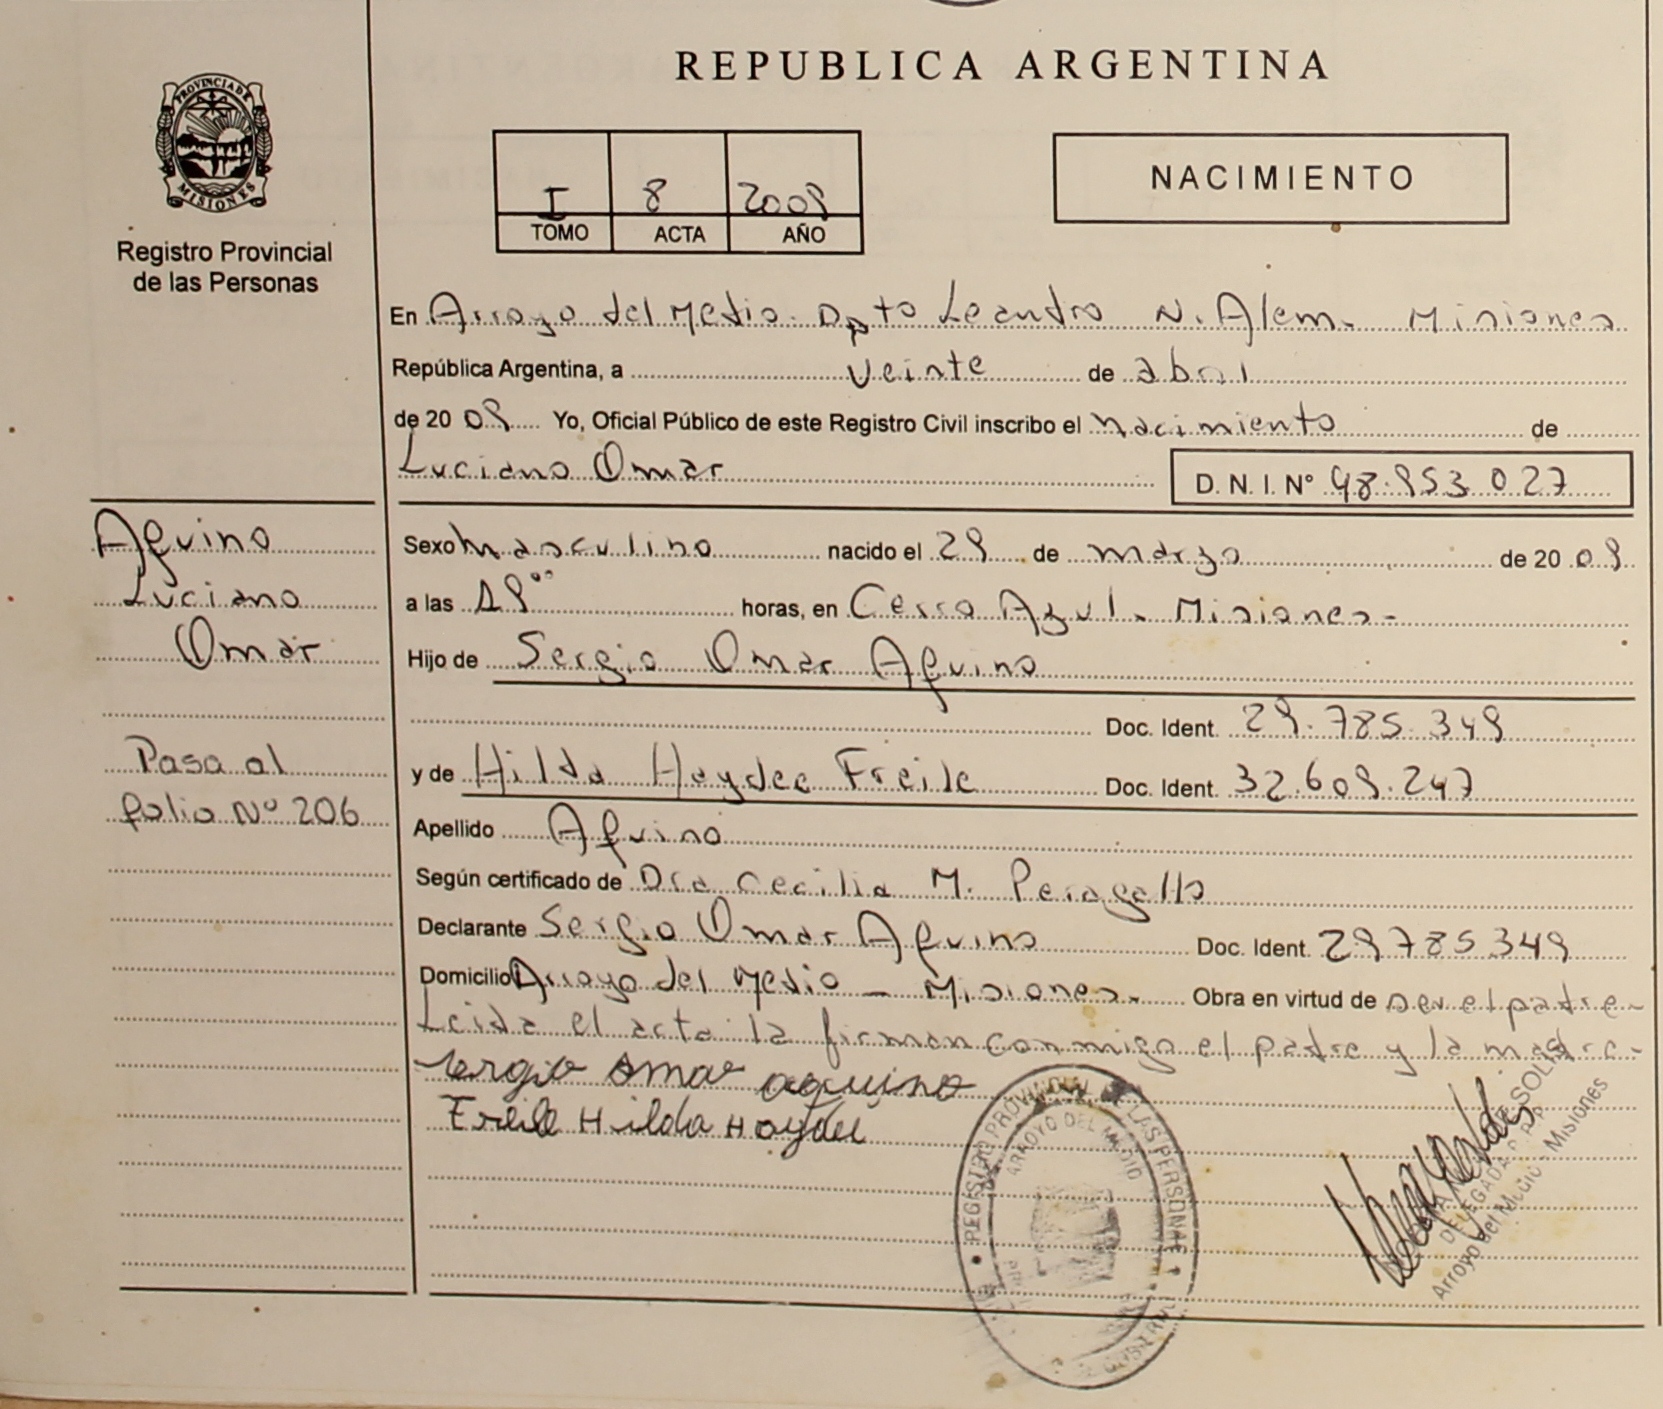 REPUBLICA ARGENTINA
PROVINCIA DE
MISIONES
Registro Provincial
de las Personas
I 8 2009
TOMO ACTA AÑO
NACIMIENTO
En Arroyo del Medio. Dpto Leandro N. Alem. Misiones
República Argentina, a veinte de abril
de 20 09 Yo, Oficial Público de este Registro Civil inscribo el nacimiento de
Luciano Omar D. N. I. N° 48.953.027
Aquino
Luciano
Omar
Pasa al
folio Nº 206
Sexo masculino nacido el 29 de marzo de 20 09
a las 19°° horas, en Cerro Azul. Misiones-
Hijo de Sergio Omar Aquino
Doc. Ident. 29.785.349
y de Hilda Haydee Freile Doc. Ident. 32.609.247
Apellido Aquino
Según certificado de Dra Cecilia M. Peragallo
Declarante Sergio Omar Aquino Doc. Ident. 29785349
Domicilio Arroyo del Medio - Misiones. Obra en virtud de ser el padre-
Leida el acta la firman conmigo el padre y la madre-
Sergio Omar aquino
Freile Hilda Haydee
REGISTRO PROVINCIAL DE LAS PERSONAS
ARROYO DEL MEDIO
DELEGADA R.P.P.
Arroyo del Medio - Misiones